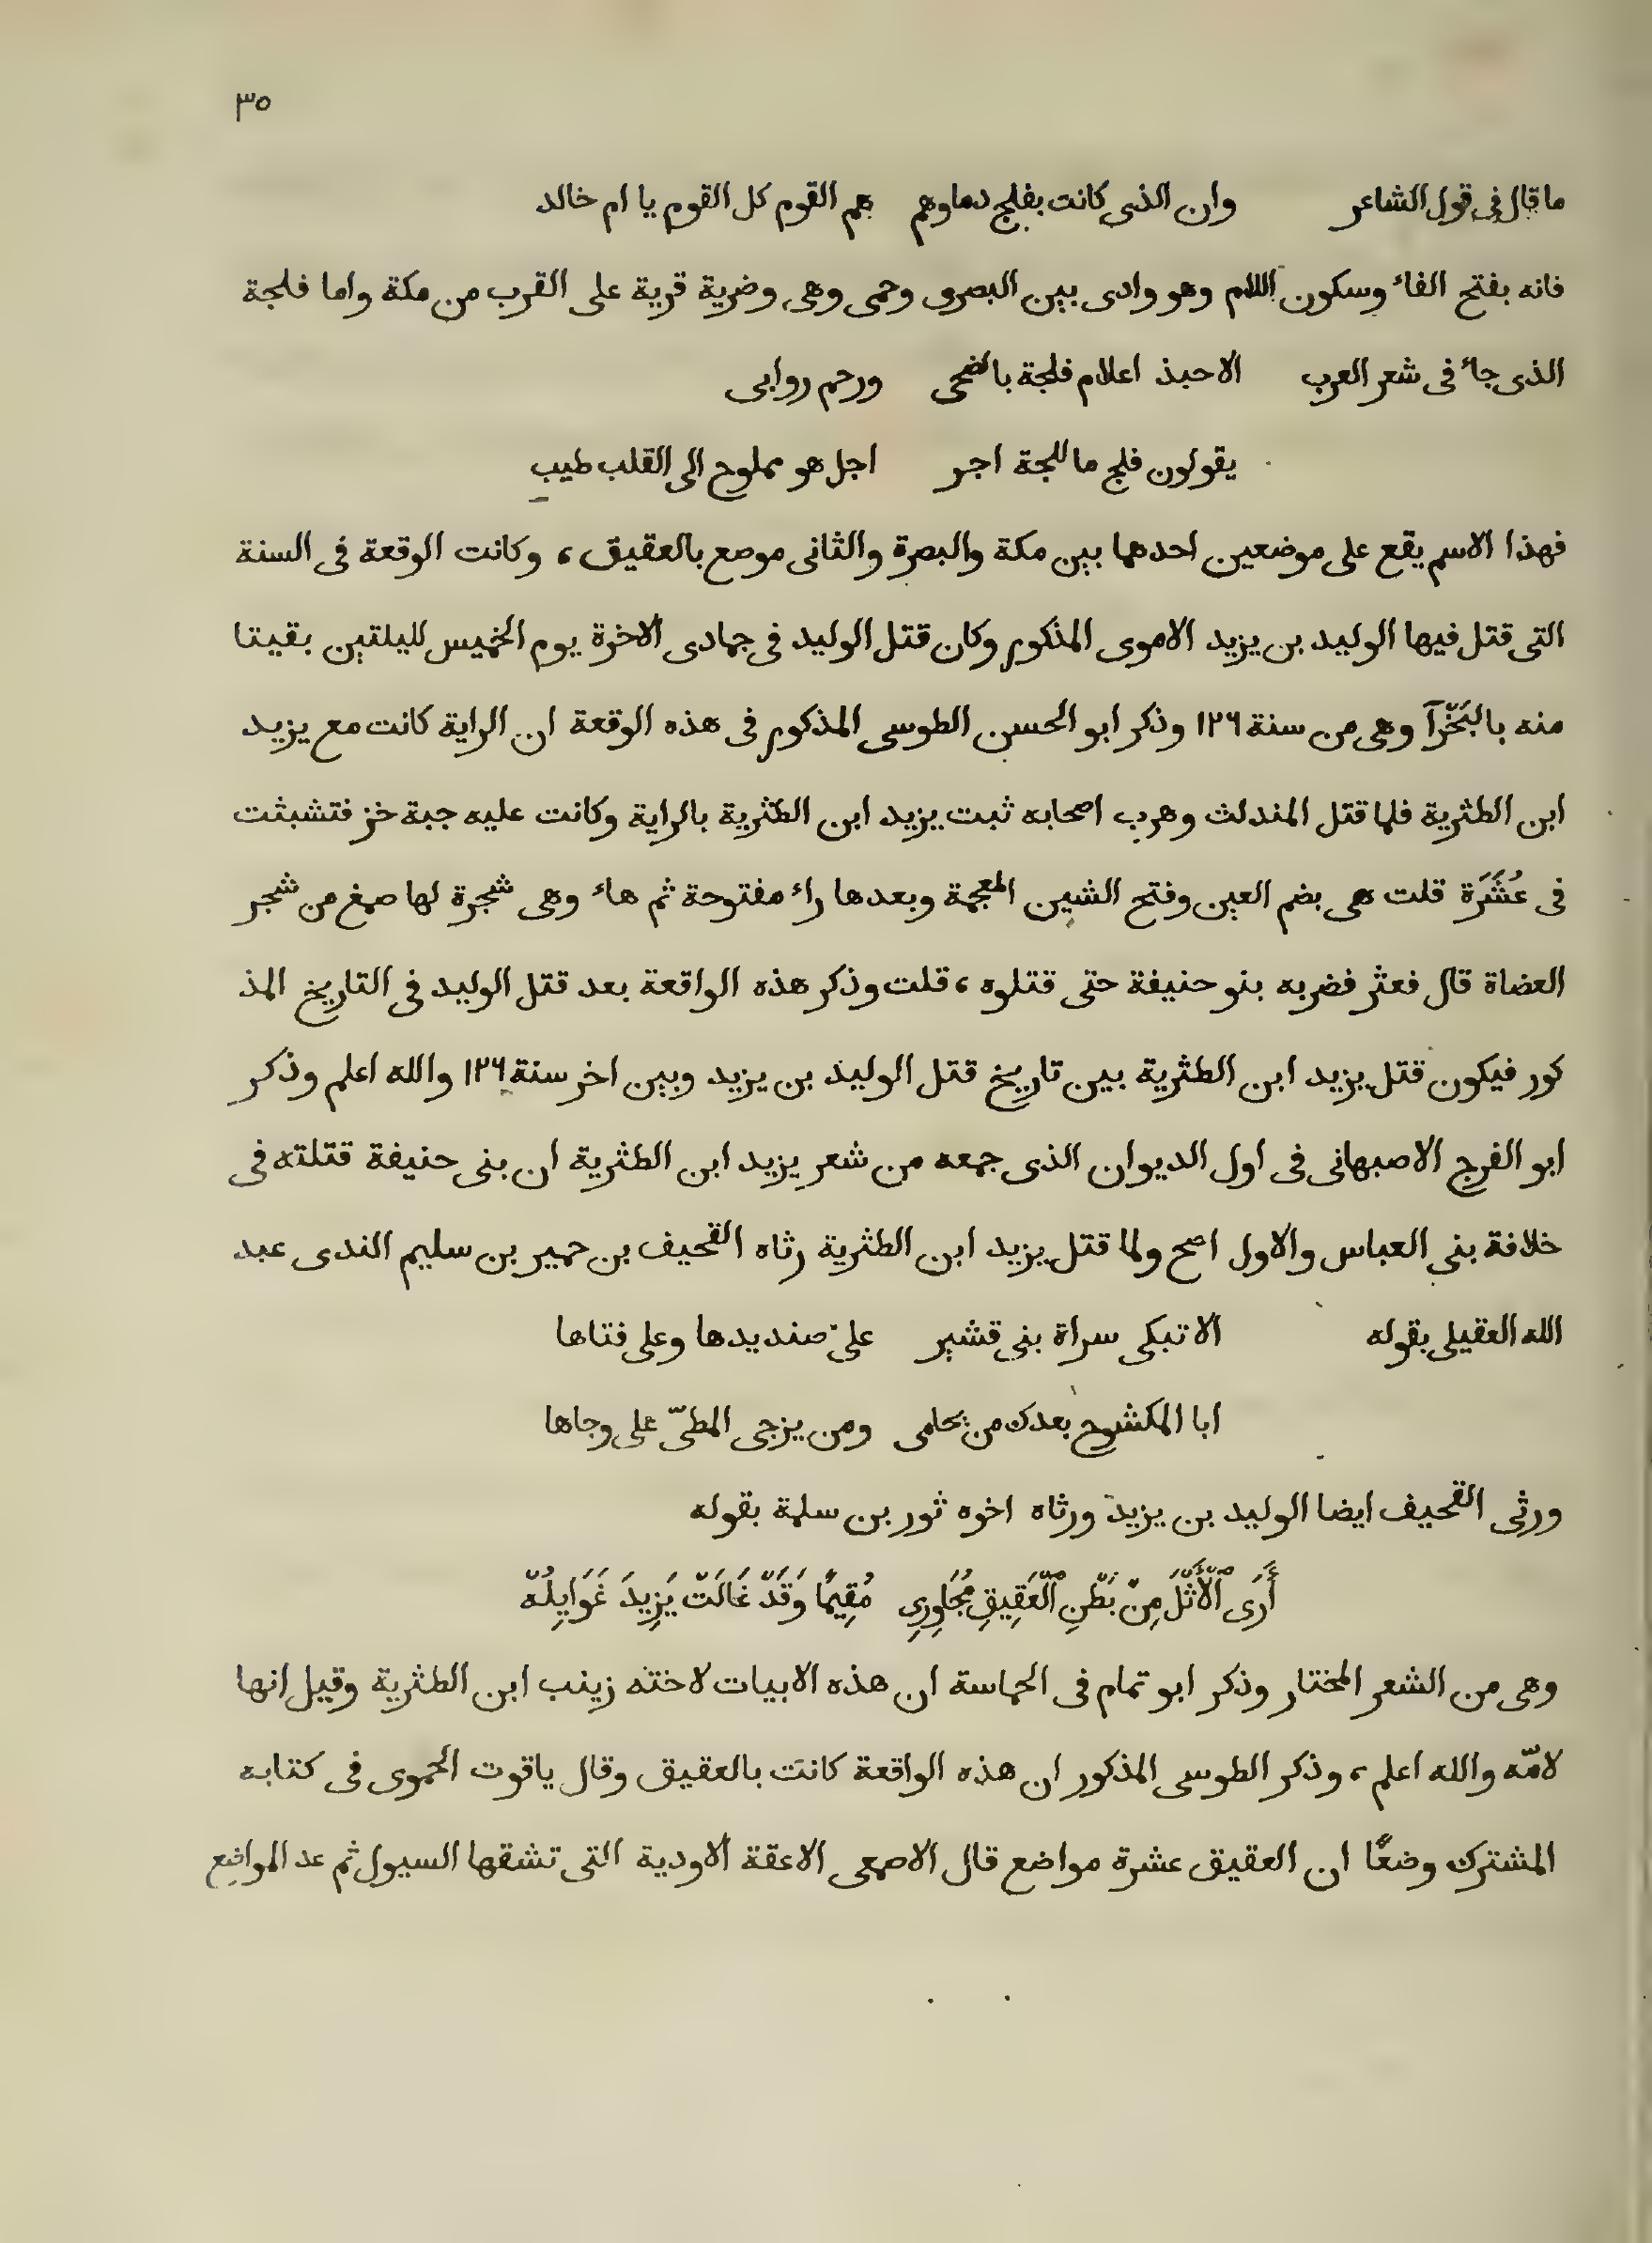 ٣٥
ما قال فى قول الشاعر وان الذى كانت بفلج دماوهم هم القوم كل القوم يا ام خالد
فانه بفتح الفاء وسكون اللام وهو وادى بين البصرى وحمى وهى وضرية قرية على القرب من مكة واما فلجة
الذى جاء فى شعر العرب الاحبذ اعلام فلجة بالضحى ورحم روابى
يقولون فلج ما للجة اجر اجل هو مملوح الى القلب طيب
فهذا الاسم يقع على موضعين احدهما بين مكة والبصرة والثانى موصع بالعقيق، وكانت الوقعة فى السنة
التى قتل فيها الوليد بن يزيد الاموى المذكور وكان قتل الوليد فى جمادى الاخرة يوم الخميس لليلتين بقيتا
منه بالبَخّرآ وهى من سنة ١٢٦ وذكر ابو الحسن الطوسى المذكور فى هذه الوقعة ان الراية كانت مع يزيد
ابن الطثرية فلما قتل المندلث وهرب اصحابه ثبت يزيد ابن الطثرية بالراية وكانت عليه جبة خز فتشبثت
فى عُشَرَة قلت هى بضم العين وفتح الشين المعجمة وبعدها راء مفتوحة ثم هاء وهى شجرة لها صمغ من شجر
العضاة قال فعثر فضربه بنو حنيفة حتى قتلوه، قلت وذكر هذه الواقعة بعد قتل الوليد فى التاريخ المذ
كور فيكون قتل يزيد ابن الطثرية بين تاريخ قتل الوليد بن يزيد وبين اخر سنة ١٢٦ والله اعلم وذكر
ابو الفرج الاصبهانى فى اول الديوان الذى جمعه من شعر يزيد ابن الطثرية ان بنى حنيفة قتلته فى
خلافة بنى العباس والاول اصح ولما قتل يزيد ابن الطثرية رثاه القحيف بن حمير بن سليم الندى عبد
الله العقيلى بقوله الا تبكى سراة بنى قشير على صنديدها وعلى فتاها
ابا المكشوح بعدك من يحامى ومن يزجى المطىّ على وجاها
ورثى القحيف ايضا الوليد بن يزيد ورثاه اخوه ثور بن سلمة بقوله
أَرَى ٱلْأَثْلَ مِنْ بَطْنِ ٱلْعَقِيقِ مُجَاوِرِى مُقِيمًا وَقَدْ غَالَتْ يَزِيدَ غَوَايِلُهْ
وهى من الشعر المختار وذكر ابو تمام فى الحماسة ان هذه الابيات لاخته زينب ابن الطثرية وقيل انها
لامّه والله اعلم، وذكر الطوسى المذكور ان هذه الواقعة كانت بالعقيق وقال ياقوت الحموى فى كتابه
المشترك وضعًا ان العقيق عشرة مواضع قال الاصمعى الاعقة الاودية التى تشقها السيول ثم عد المواضع